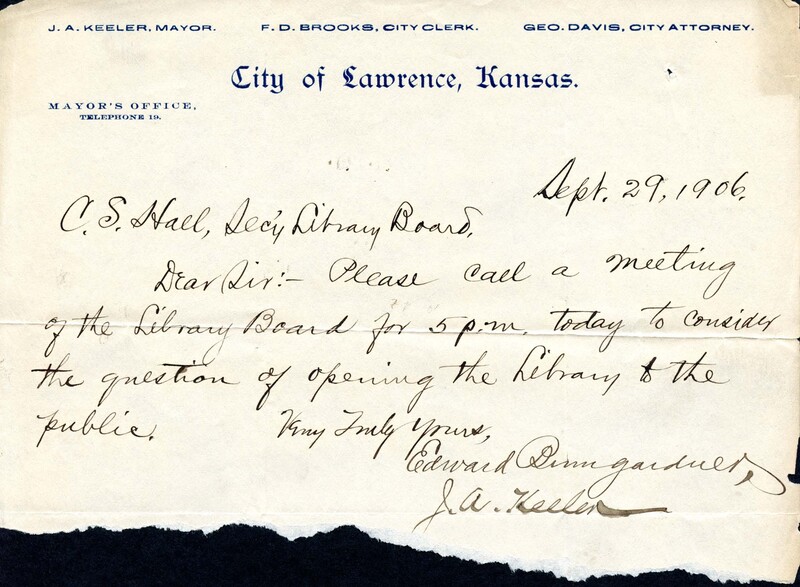 J. A. KEELER, MAYOR. F. D. BROOKS, CITY CLERK. GEO. DAVIS, CITY ATTORNEY.
City of Lawrence, Kansas.
MAYOR'S OFFICE,
TELEPHONE 19.
Sept. 29, 1906.
C. S. Hall, Sec'y Library Board,
Dear Sir:– Please call a meeting
of the Library Board for 5 p.m. today to consider
the question of opening the Library to the
public. Very Truly Yours,
Edward Bumgardner,
J. A. Keeler